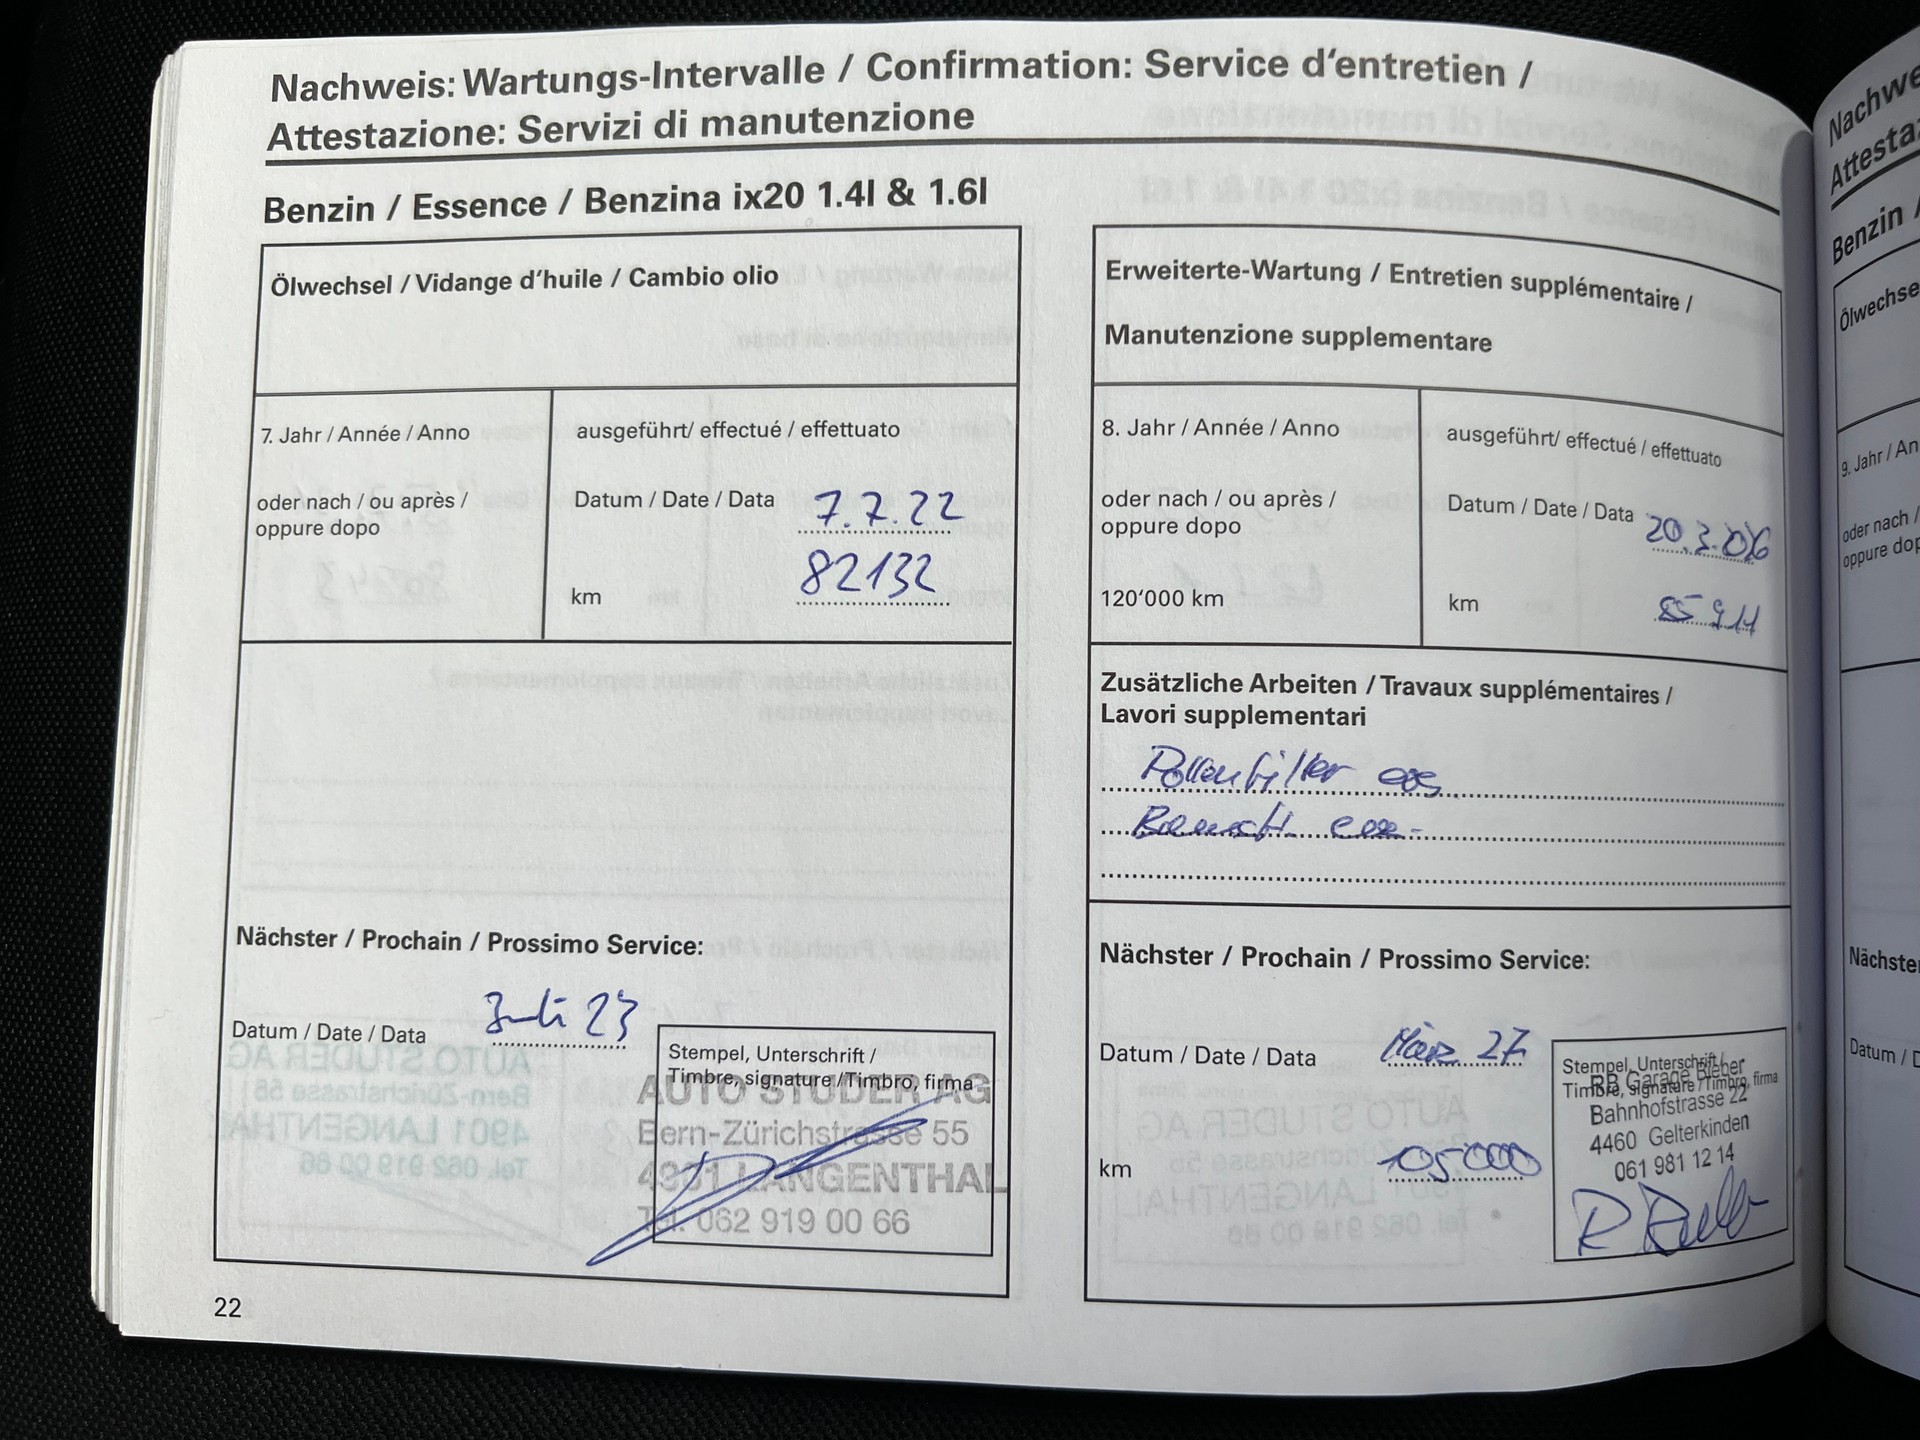 Nachweis: Wartungs-Intervalle / Confirmation: Service d'entretien /
Attestazione: Servizi di manutenzione
Benzin / Essence / Benzina ix20 1.4l & 1.6l
Ölwechsel / Vidange d'huile / Cambio olio
7. Jahr / Année / Anno
ausgeführt/ effectué / effettuato
oder nach / ou après /
oppure dopo
Datum / Date / Data 7.7.22
km 82132
Nächster / Prochain / Prossimo Service:
Datum / Date / Data Juli 23
Stempel, Unterschrift /
Timbre, signature /Timbro, firma
AUTO STUDER AG
Bern-Zürichstrasse 55
4901 LANGENTHAL
Tel. 062 919 00 66
22
Erweiterte-Wartung / Entretien supplémentaire /
Manutenzione supplementare
8. Jahr / Année / Anno
ausgeführt/ effectué / effettuato
oder nach / ou après /
oppure dopo
Datum / Date / Data 20.3.
120'000 km
km 85911
Zusätzliche Arbeiten / Travaux supplémentaires /
Lavori supplementari
Pollenfilter ers.
Nächster / Prochain / Prossimo Service:
Datum / Date / Data März 27
km 105000
Stempel, Unterschrift /
Timbre, signature /Timbro, firma
RB Garage Bieber
Bahnhofstrasse 22
4460 Gelterkinden
061 981 12 14
Nachwe
Attesta
Benzin /
Ölwechse
9. Jahr / An
oder nach /
oppure dop
Nächster
Datum / D